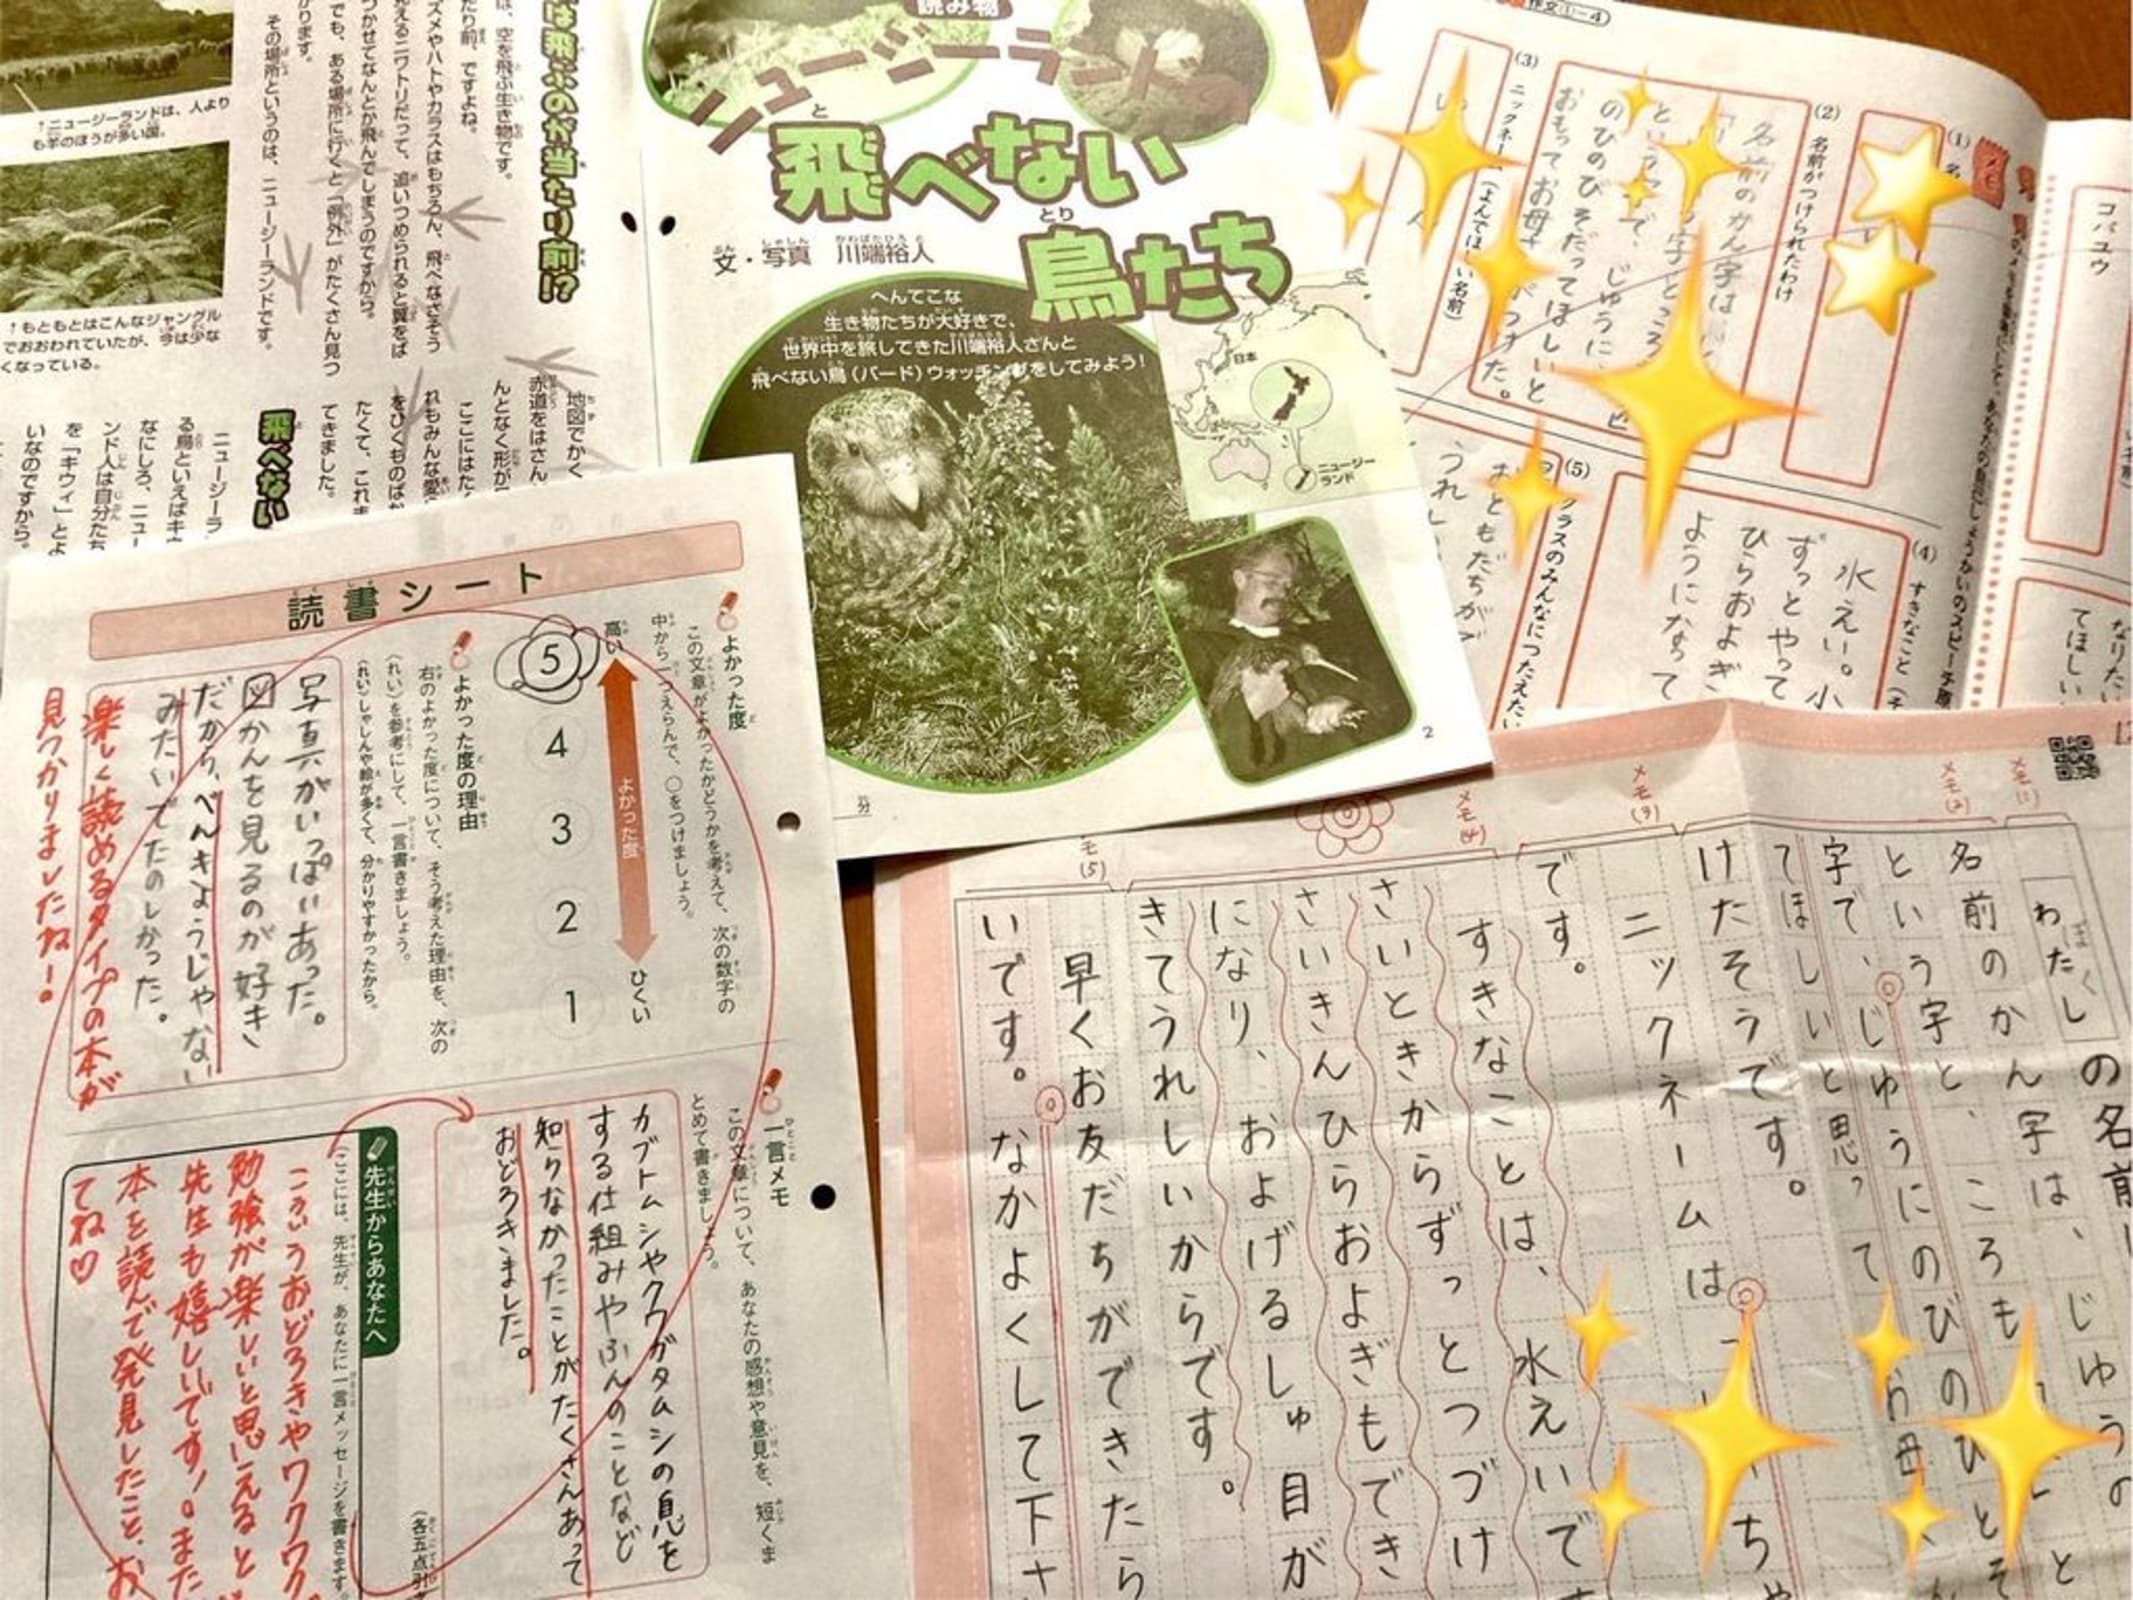 は飛ぶのが当たり前!?
は、空を飛ぶ生き物です。
たり前、ですよね。
ズメやハトやカラスはもちろん、飛べなさそう
見えるニワトリだって、追いつめられると翼をば
つかせてなんとか飛んでしまうのですから。
でも、ある場所に行くと「例外」がたくさん見つ
かります。
その場所というのは、ニュージーランドです。
↑ニュージーランドは、人より
も羊のほうが多い国。
↑もともとはこんなジャングル
でおおわれていたが、今は少な
くなっている。
地図でかく
赤道をはさん
んとなく形が
ここにはた
れもみんな愛
をひくものば
たくて、これま
てきました。
飛べない
ニュージーラ
る鳥といえばキ
なにしろ、ニュー
ンド人は自分たち
を「キウィ」とよ
いなのですから。
読み物
ニュージーランドの
飛べない
鳥たち
文・写真 川端裕人
へんてこな
生き物たちが大好きで、
世界中を旅してきた川端裕人さんと
飛べない鳥(バード)ウォッチングをしてみよう!
日本
ニュージー
ランド
2
分
読書シート
よかった度
この文章がよかったかどうかを考えて、次の数字の
中から一つえらんで、○をつけましょう。
高い
5
4
3
2
1
よかった度
ひくい
よかった度の理由
右のよかった度について、そう考えた理由を、次の
(れい)を参考にして、一言書きましょう。
(れい)しゃしんや絵が多くて、分かりやすかったから。
写真がいっぱいあった。
図かんを見るのが好き
だから、べんきょうじゃない
みたいでたのしかった。
楽しく読めるタイプの本が
見つかりましたね!
一言メモ
この文章について、あなたの感想や意見を、短くま
とめて書きましょう。
カブトムシやクワガタムシの息を
する仕組みやふんのことなど
知らなかったことがたくさんあって
おどろきました。
(各五点引
先生からあなたへ
ここには、先生が、あなたに一言メッセージを書きます。
こういうおどろきやワクワク
勉強が楽しいと思えると
先生も嬉しいです!。また
本を読んで発見したこと、お
てね♡
作文①-4
(1)
メモ
(2) 名前がつけられたわけ
名前のかん字は
のひのびそだってほしいと
おもってお母さ
つけた。
(3) ニックネーム(よんでほしい名前)
(4) すきなこと
水えい。小
ずっとやって
ひらおよぎ
ようになって
(5) クラスのみんなにつたえたい
おともだちが
うれし
コバユウ
なりたい
てほしい
メモ(1)
メモ(2)
メモ(3)
メモ(4)
メモ(5)
わたし
ぼく
の名前
じゅうの
名前のかん字は、
という字と、ころも
字で、じゅうにのびのびとそ
てほしいと思って
けたそうです。
ニックネームは
ちゃ
です。
すきなことは、水えいです
さいときからずっとつづけ
さいきんひらおよぎもでき
になり、およげるしゅ目が
きてうれしいからです。
早くお友だちができたら
いです。なかよくして下さ